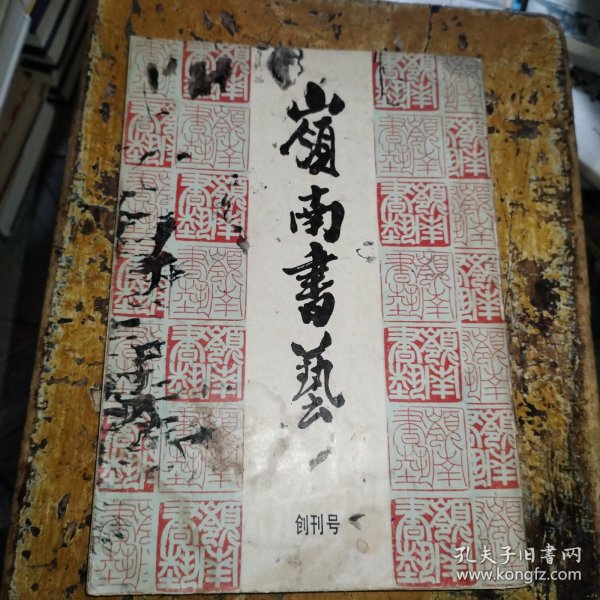 嶺南書藝
创刊号
孔夫子旧書网
www.kongfz.com